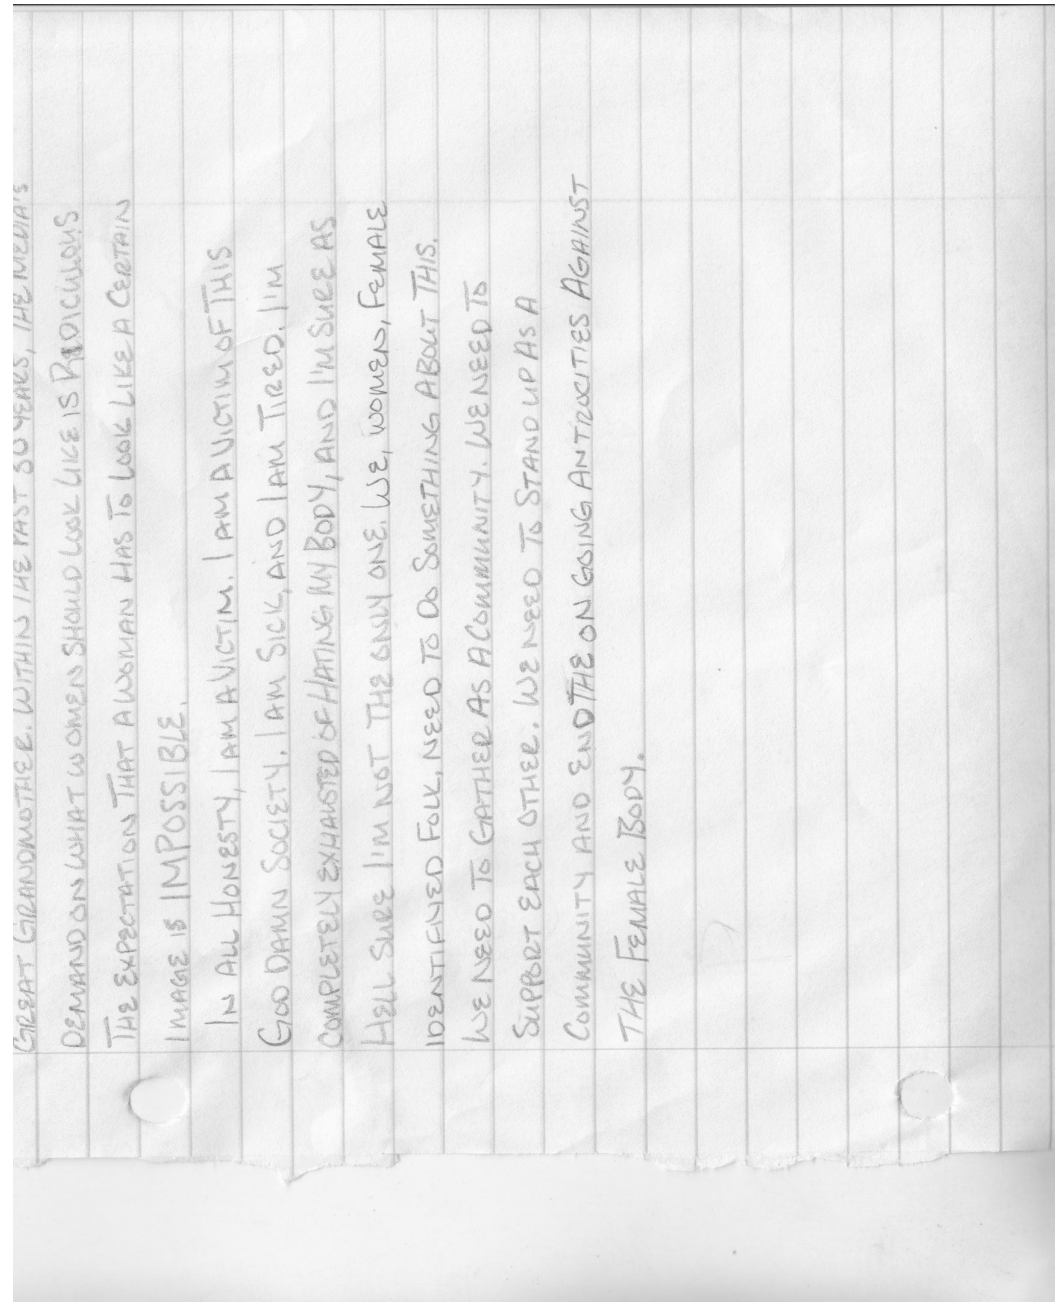 GREAT GRANDMOTHER. WITHIN THE PAST 50 YEARS, THE MEDIA'S
DEMAND ON WHAT WOMEN SHOULD LOOK LIKE IS RIDICULOUS
THE EXPECTATION THAT A WOMAN HAS TO LOOK LIKE A CERTAIN
IMAGE IS IMPOSSIBLE.
IN ALL HONESTY, I AM A VICTIM. I AM A VICTIM OF THIS
GOD DAMN SOCIETY. I AM SICK, AND I AM TIRED. I'M
COMPLETELY EXHAUSTED OF HATING MY BODY, AND I'M SURE AS
HELL SURE I'M NOT THE ONLY ONE. WE, WOMEN, FEMALE
IDENTIFIYED FOLK, NEED TO DO SOMETHING ABOUT THIS.
WE NEED TO GATHER AS A COMMUNITY. WE NEED TO
SUPPORT EACH OTHER. WE NEED TO STAND UP AS A
COMMUNITY AND END THE ON GOING ANTROCITIES AGAINST
THE FEMALE BODY.